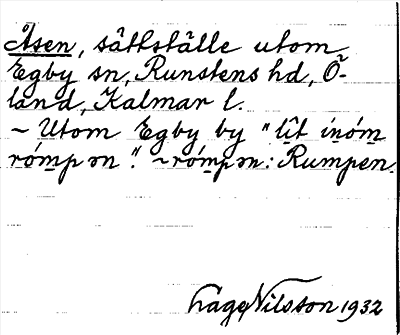 Åsen, sättställe utom
Egby sn, Runstens hd, Ö-
land, Kalmar l.
~ Utom Egby by "lit inóm
rómpən". ~rómpən: Rumpen.
Nilsson 1932